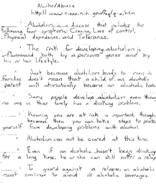 Alcohol Abuse
Alcoholism is a disease that includes the
following four symptoms: Craving, Loss of control,
Physical dependence, and Tolerance.
The risk for developing alcoholism is
influenced both by a person's genes and by
his or her lifestyle.
Just because alcoholism tends to run in
families doesn't mean that a child of an alcoholic
parent will automatically become an alcoholic
Some people develop alcoholism even though
no one in their family has a drinking problem.
Knowing you are at risk is important though
because then you can take steps to protect
yourself from developing problems with alcohol.
Alcoholism can not be cured at this time.
Even if an alcoholic hasn't been drinking
for a long time, he or she can still suffer a relapse
To guard against a relapse an alcoholic
must continue to avoid all alcoholic beverages.